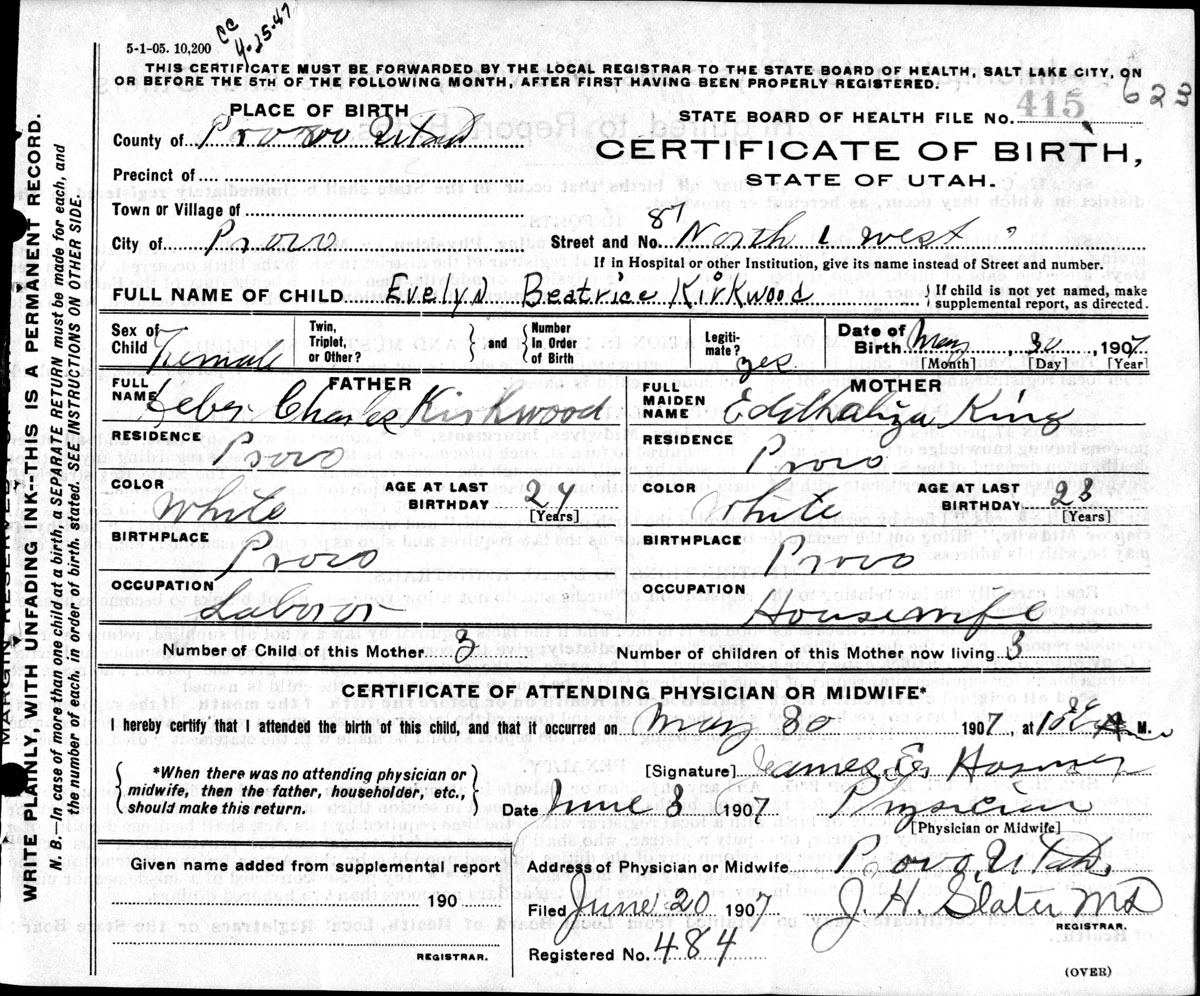 5-1-05. 10,200
CC
4-25-47
THIS CERTIFICATE MUST BE FORWARDED BY THE LOCAL REGISTRAR TO THE STATE BOARD OF HEALTH, SALT LAKE CITY, ON
OR BEFORE THE 5TH OF THE FOLLOWING MONTH, AFTER FIRST HAVING BEEN PROPERLY REGISTERED.
PLACE OF BIRTH
STATE BOARD OF HEALTH FILE No. 415 623
County of Provo Utah
CERTIFICATE OF BIRTH,
Precinct of
STATE OF UTAH.
Town or Village of
City of Provo
Street and No. 87 North 1 West
If in Hospital or other Institution, give its name instead of Street and number.
FULL NAME OF CHILD Evelyn Beatrice Kirkwood { If child is not yet named, make
supplemental report, as directed.
Sex of Child Female
Twin, Triplet, or Other? } and { Number In Order of Birth
Legiti-mate? yes
Date of Birth May 30, 1907
[Month] [Day] [Year]
FATHER
FULL NAME Heber Charles Kirkwood
RESIDENCE Provo
COLOR White
AGE AT LAST BIRTHDAY 24
[Years]
BIRTHPLACE Provo
OCCUPATION Laboror
MOTHER
FULL MAIDEN NAME King
RESIDENCE Provo
COLOR White
AGE AT LAST BIRTHDAY 23
[Years]
BIRTHPLACE Provo
OCCUPATION Housewife
Number of Child of this Mother 3
Number of children of this Mother now living 3
CERTIFICATE OF ATTENDING PHYSICIAN OR MIDWIFE*
I hereby certify that I attended the birth of this child, and that it occurred on May 30 1907, at A M.
{ *When there was no attending physician or
midwife, then the father, householder, etc.,
should make this return. }
[Signature] James E.
Date June 3 1907 Physician
[Physician or Midwife]
Given name added from supplemental report
190
REGISTRAR.
Address of Physician or Midwife Provo, Utah
Filed June 20 1907 J. H. Slater MD
REGISTRAR.
Registered No. 484
(OVER)
MARGIN RESERVED
WRITE PLAINLY, WITH UNFADING INK--THIS IS A PERMANENT RECORD.
N. B.—In case of more than one child at a birth a SEPARATE RETURN must be made for each, and
the number of each, in order of birth, stated. SEE INSTRUCTIONS ON OTHER SIDE.